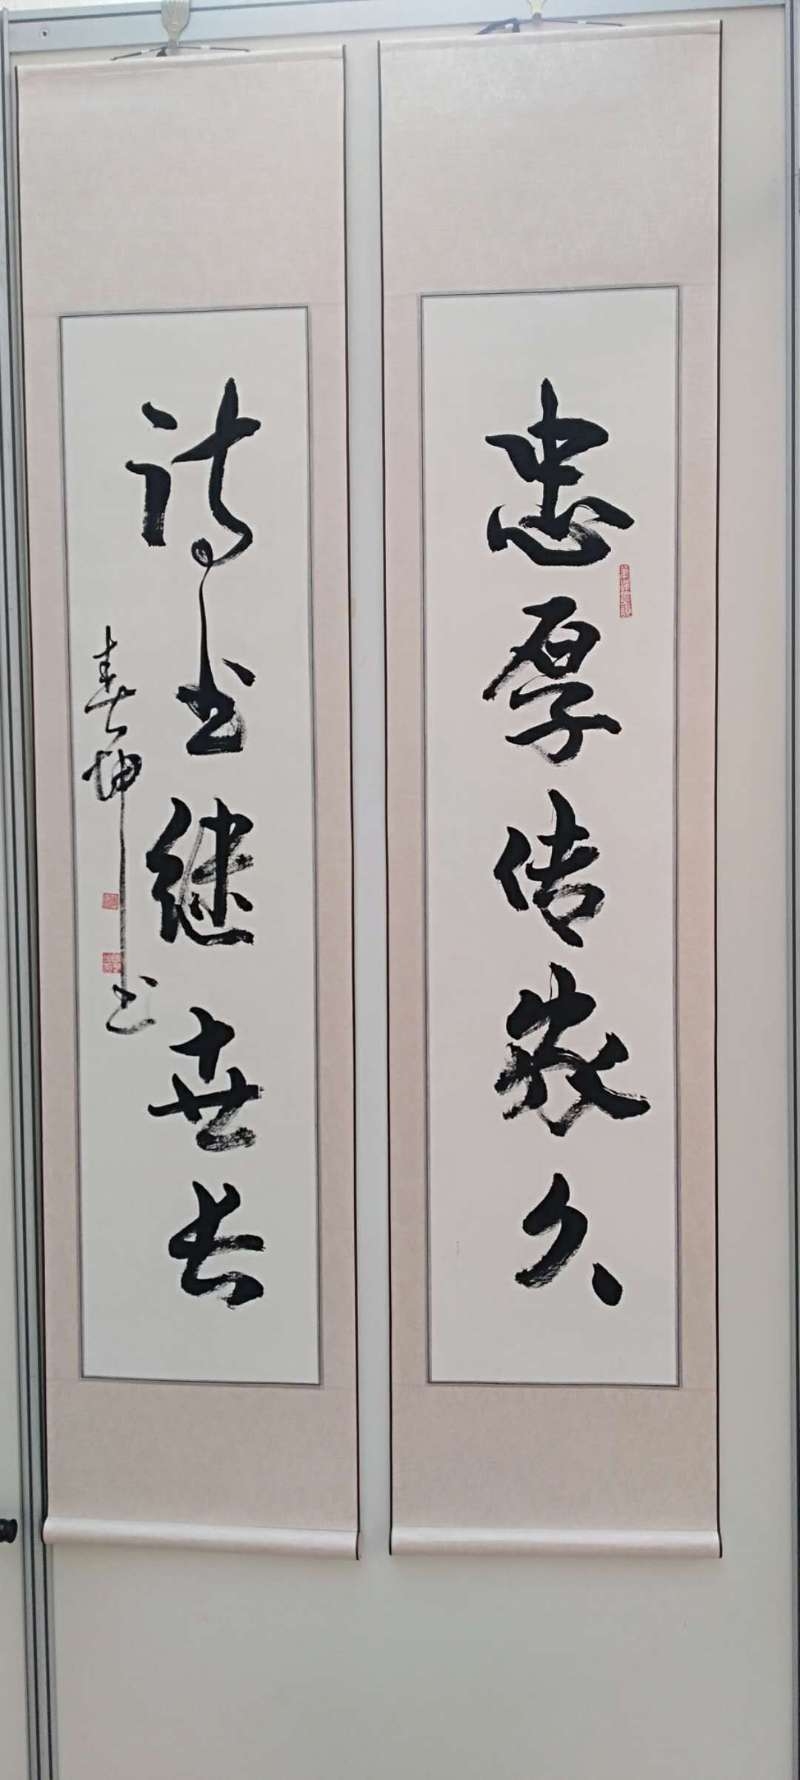 忠厚传家久
诗书继世长
春坤书